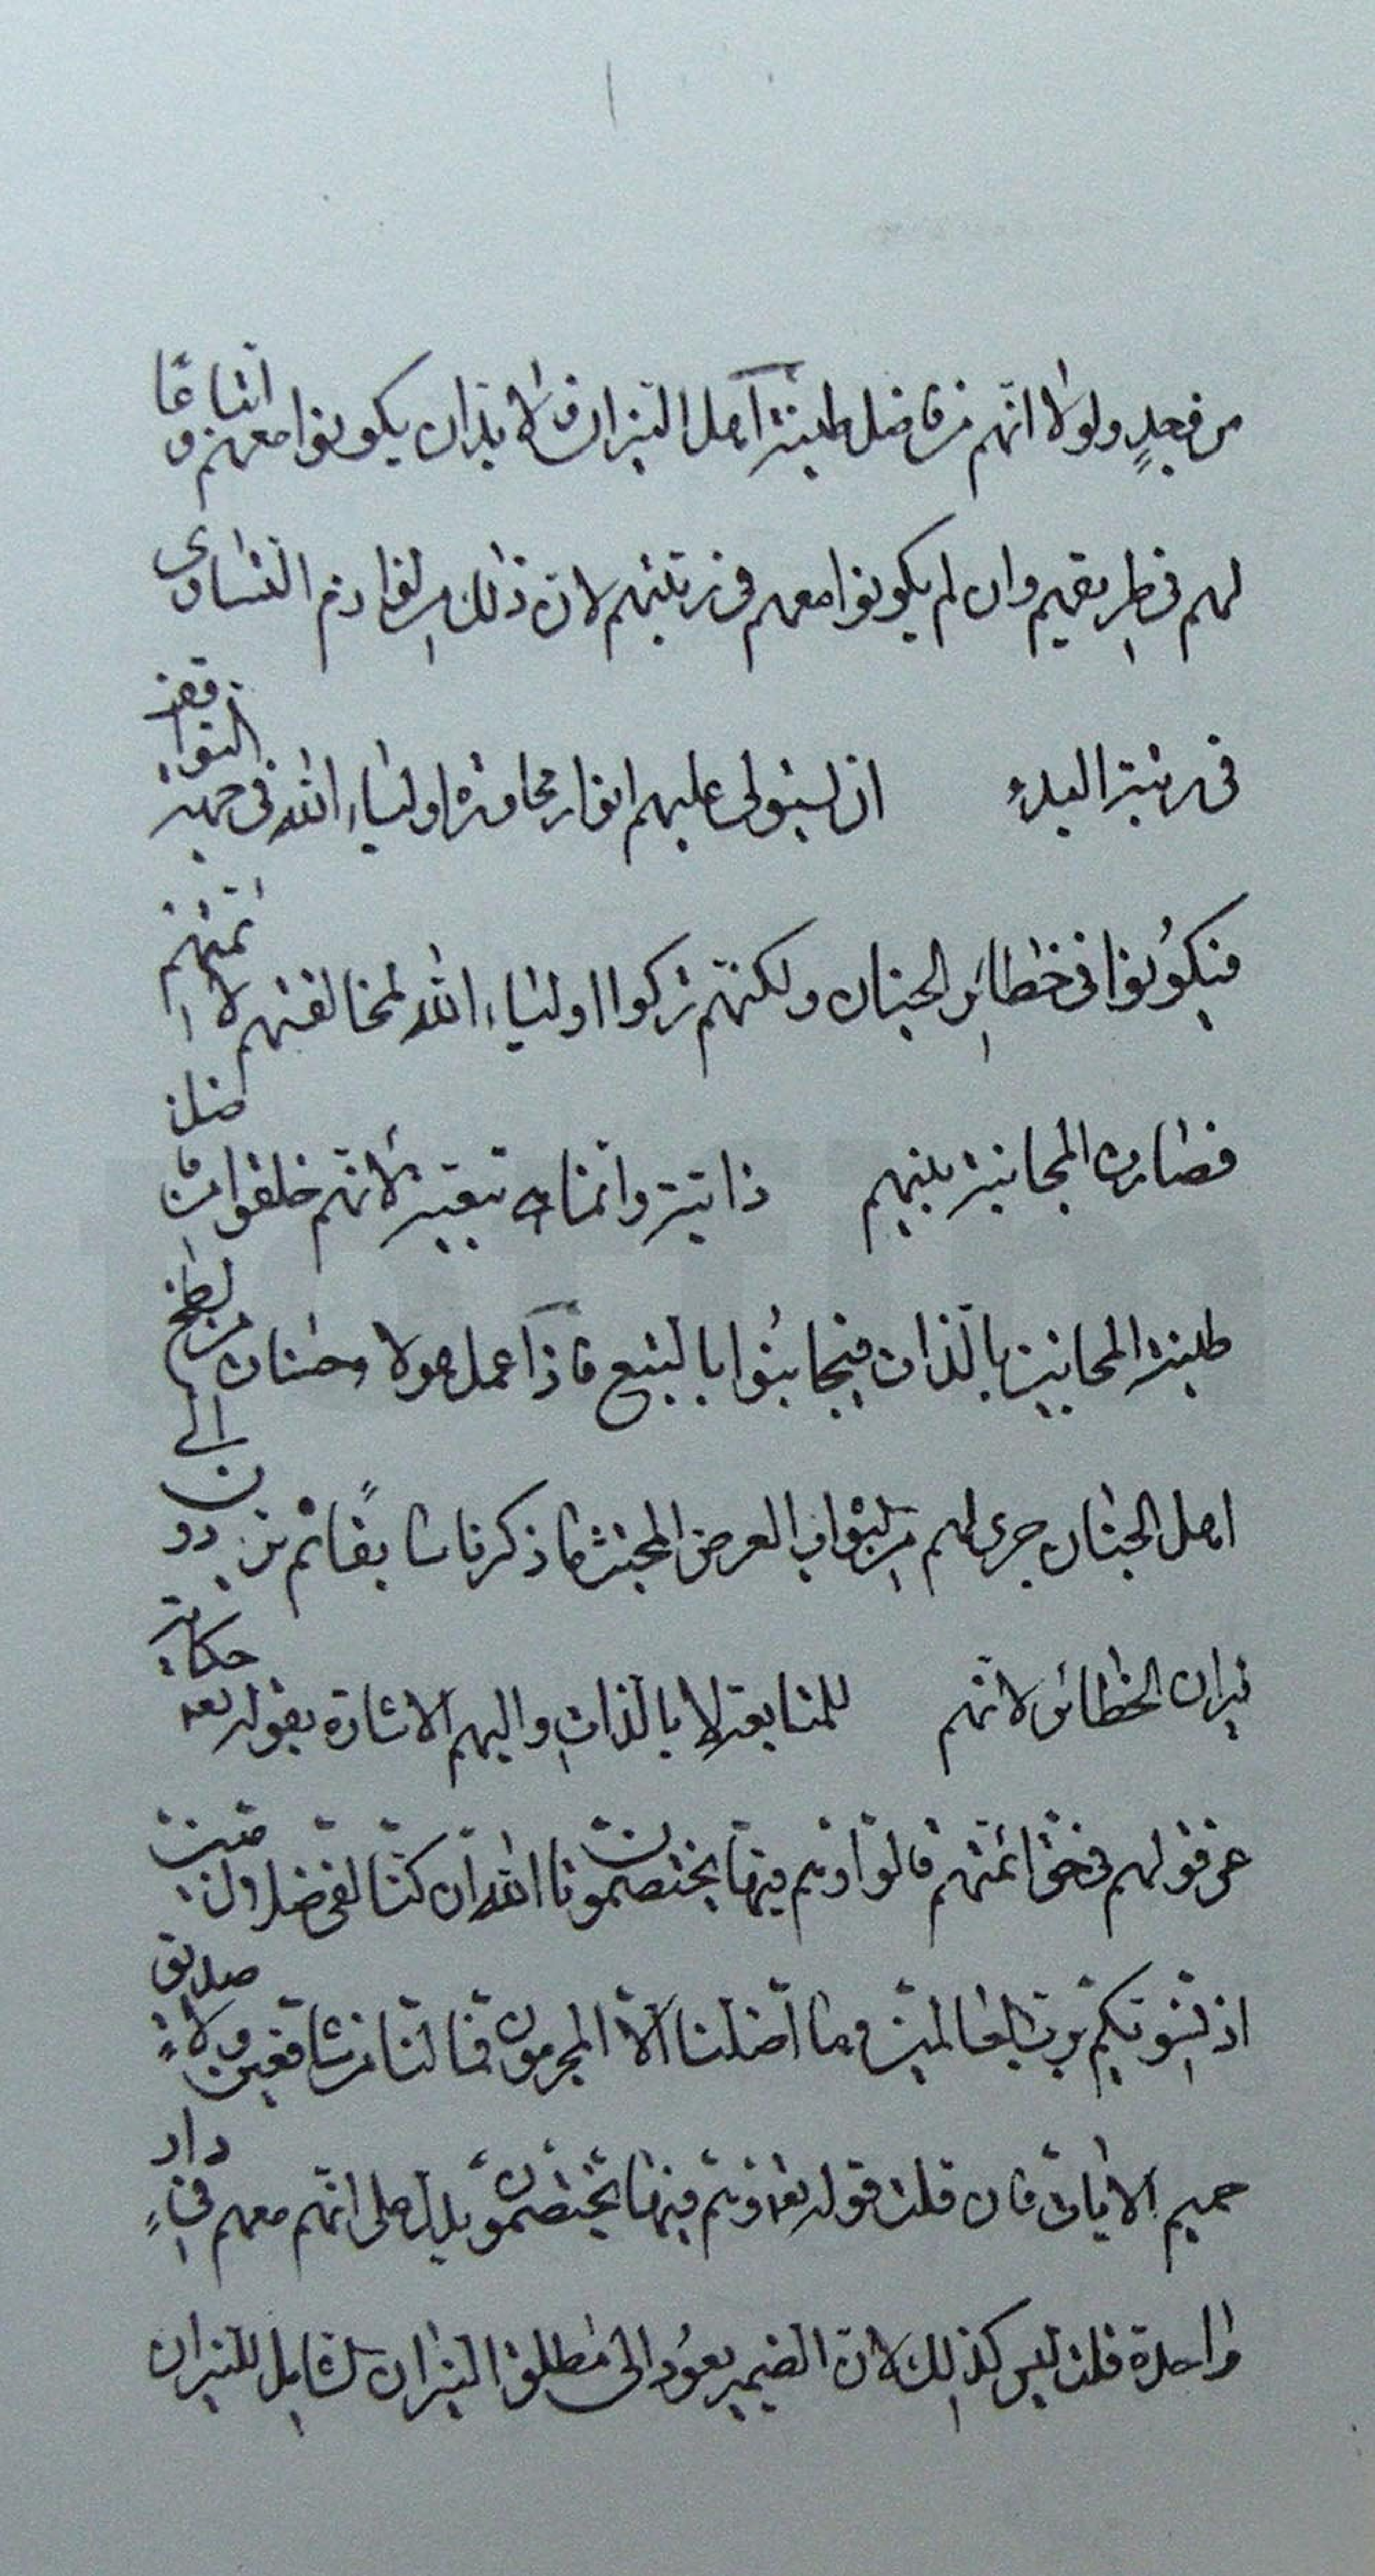 من فجدٍ ولولا انهم من فاضل طينة اهل النيران فلا بد ان يكونوا معهم و اتباعًا
لهم فى طريقهم وان لم يكونوا معهم فى رتبتهم لان ذلك من لوازم التساوى
فى رتبة البدء ان ليستولى عليهم انوار اولياء الله فى جهة التوافق
فيكونوا فى خطاير الجنان ولكنهم تركوا اولياء الله لمخالفتهم لائمتهم
فصارت المجانبة بينهم ذاتية وانما تبعية لانهم خلقوا من فاضل
طينة المجانبين بالذات فيجانبوا بالتبع فاذا عمل هولاء حسنات من لطخ
اهل الجنان جرى لهم من الثواب العرض المجتث ما ذكرنا سابقا ثم يردون الى
نيران الخطائر لانهم للمتابعة لا بالذات واليهم الاشارة بقوله تعه حكاية
عن قولهم فى حق ائمتهم قالوا وهم فيها يختصمون تالله ان كنا لفى ضلال مبين
اذ نسويكم برب العالمين وما اضلنا الا المجرمون فما لنا من شافعين ولا صديق
حميم الايات فان قلت قوله تعه وهم فيها يختصمون يدل على انهم معهم فى دار
واحدة قلت ليس كذلك لان الضمير يعود الى مطلق النيران الشامل للنيران